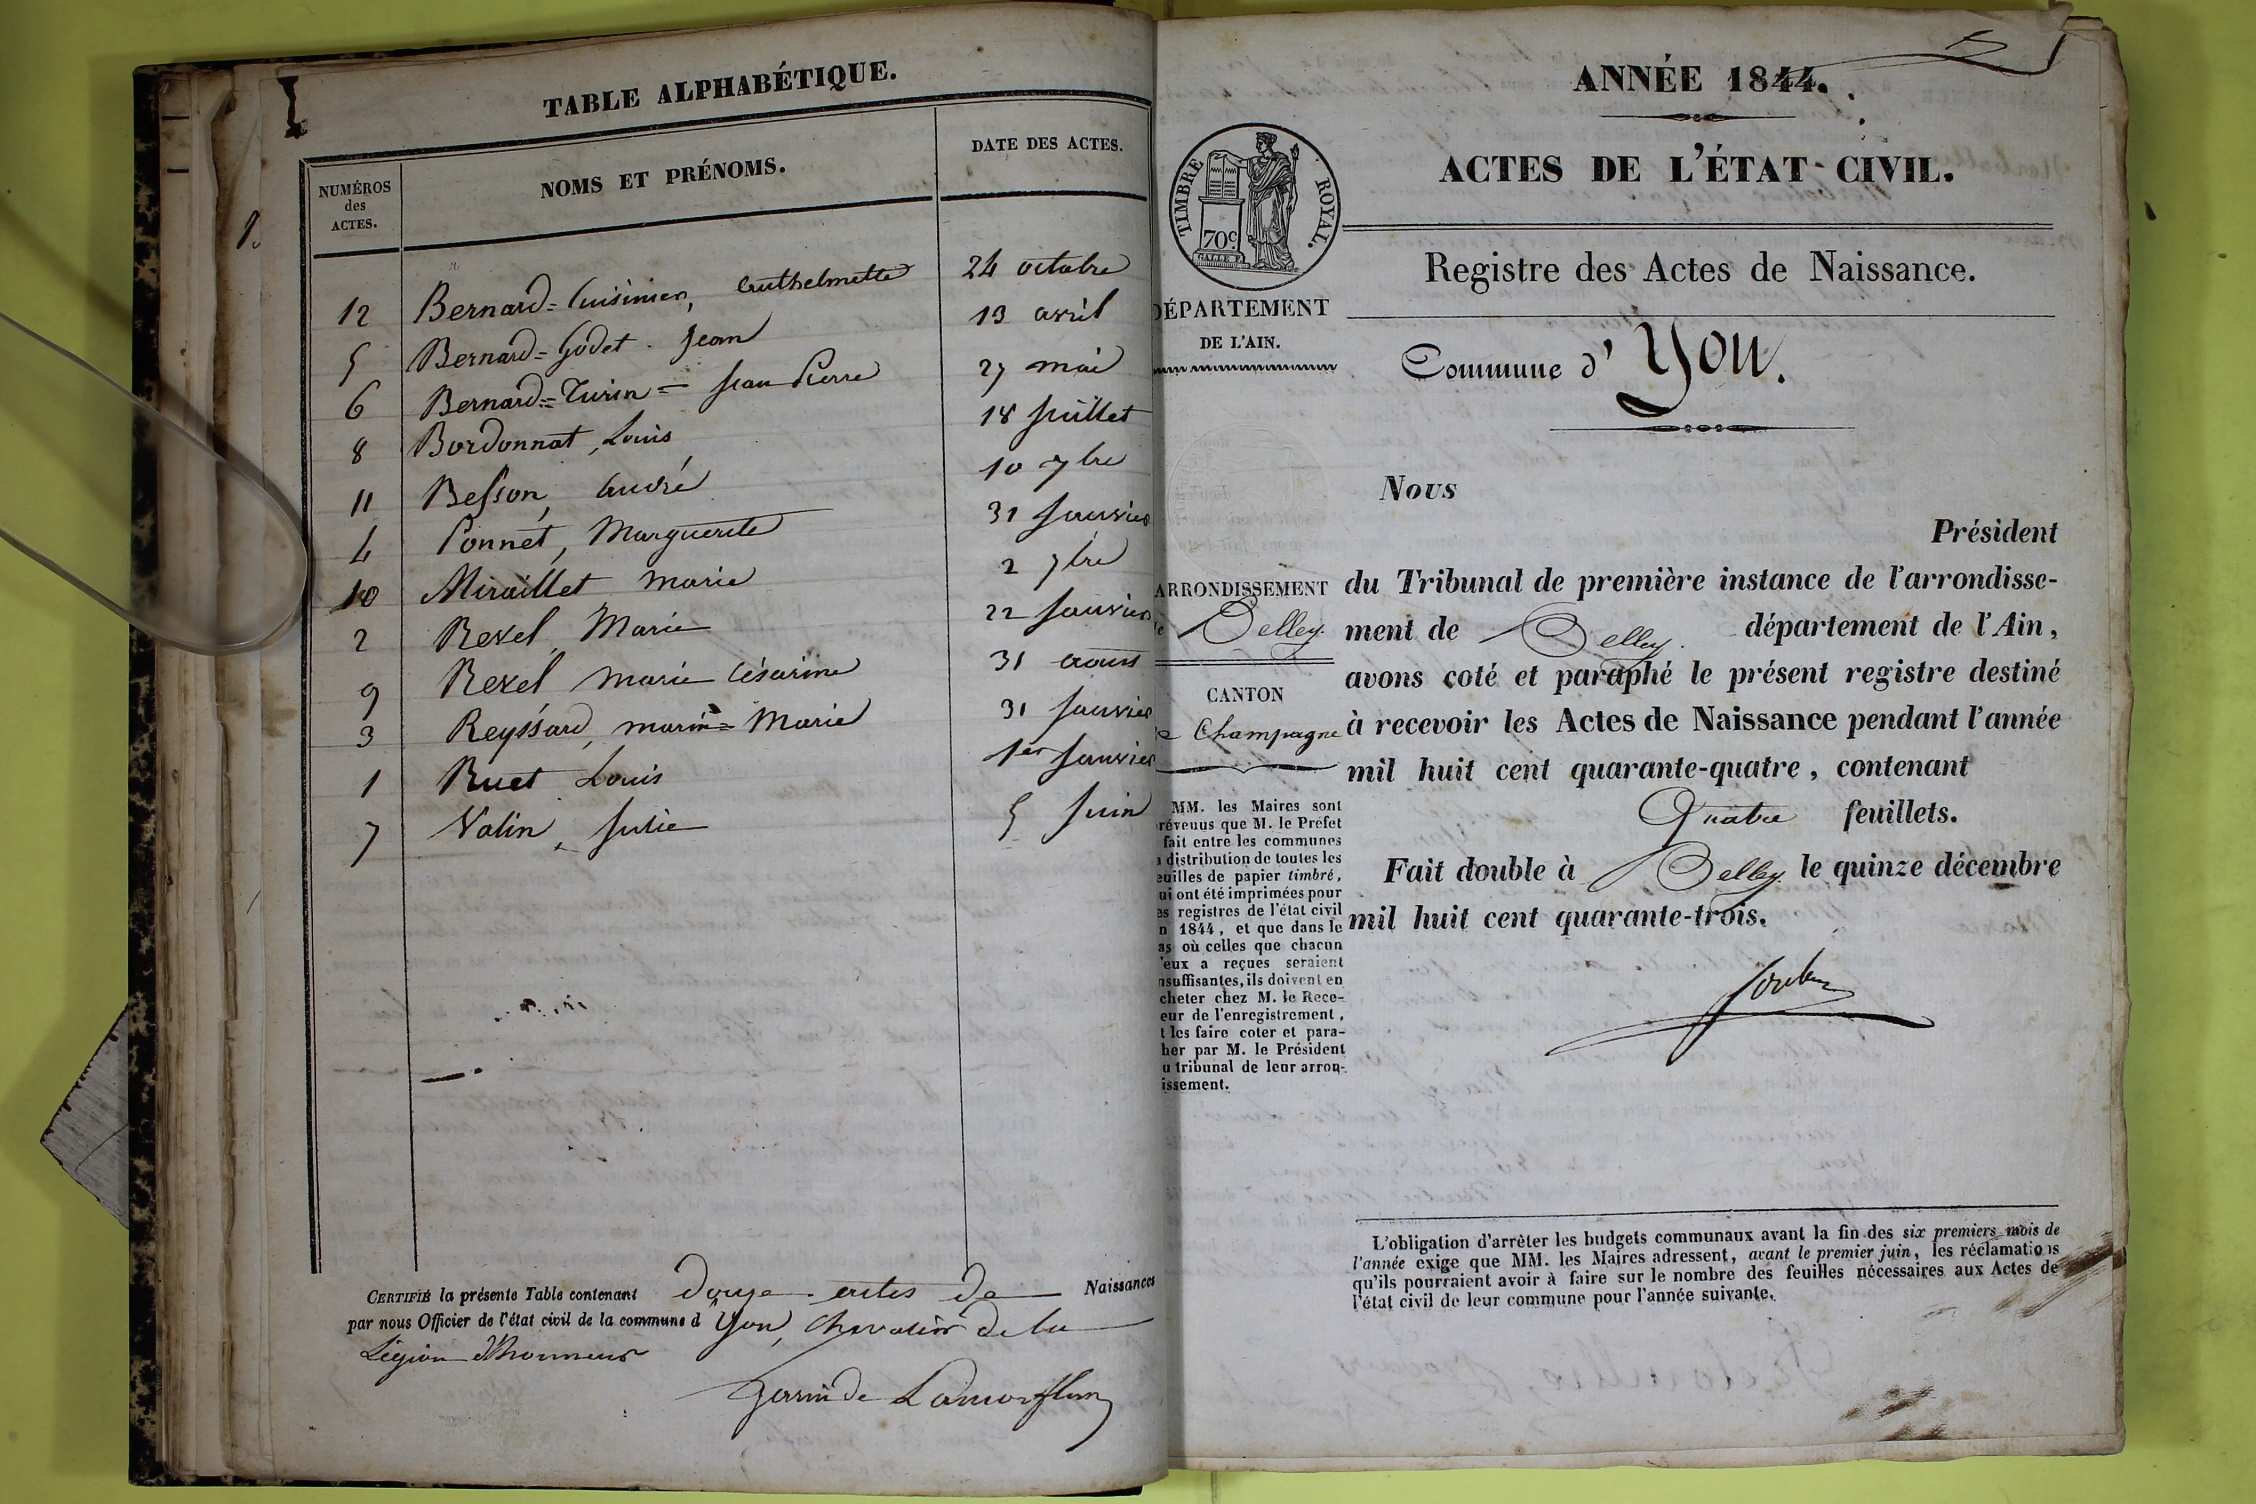 TABLE ALPHABÉTIQUE.
NUMÉROS des ACTES.
NOMS ET PRÉNOMS.
DATE DES ACTES.
12 Bernard=Cuisinier, Anthelmette 24 octobre
5 Bernard=Godet. Jean 13 avril
6 Bernard=Turin= Jean Pierre 27 mai
8 Bordonnat, Louis 18 Juillet
11 Besson, André 10 7bre
4 Connet, Marguerite 31 Janvier
10 Miraillet Marie 2 7bre
2 Rexel, Marie 22 Janvier
9 Rexel Marie Césarine 31 aout
3 Reyssard, marie=Marie 31 Janvier
1 Ruet Louis 1er Janvier
7 Valin, Julie 5 Juin
CERTIFIÉ la présente Table contenant douze actes de Naissances
par nous Officier de l'état civil de la commune d'Yon, chevalier de la
Légion d'honneur
1.
ANNÉE 1844.
ACTES DE L'ÉTAT CIVIL.
TIMBRE ROYAL.
70c
Registre des Actes de Naissance.
DÉPARTEMENT
DE L'AIN.
Commune d'Yon.
Nous
Président
ARRONDISSEMENT
Belley.
CANTON
Champagne
du Tribunal de première instance de l'arrondisse-
ment de Belley. département de l'Ain,
avons coté et paraphé le présent registre destiné
à recevoir les Actes de Naissance pendant l'année
mil huit cent quarante-quatre, contenant
Quatre feuillets.
Fait double à Belley le quinze décembre
mil huit cent quarante-trois.
MM. les Maires sont
révenus que M. le Préfet
fait entre les communes
a distribution de toutes les
euilles de papier timbré,
ui ont été imprimées pour
es registres de l'état civil
n 1844, et que dans le
as où celles que chacun
'eux a reçues seraient
nsuffisantes, ils doivent en
cheter chez M. le Rece-
eur de l'enregistrement,
t les faire coter et para-
her par M. le Président
u tribunal de leur arron-
issement.
L'obligation d'arrêter les budgets communaux avant la fin des six premiers mois de
l'année exige que MM. les Maires adressent, avant le premier juin, les réclamations
qu'ils pourraient avoir à faire sur le nombre des feuilles nécessaires aux Actes de
l'état civil de leur commune pour l'année suivante.